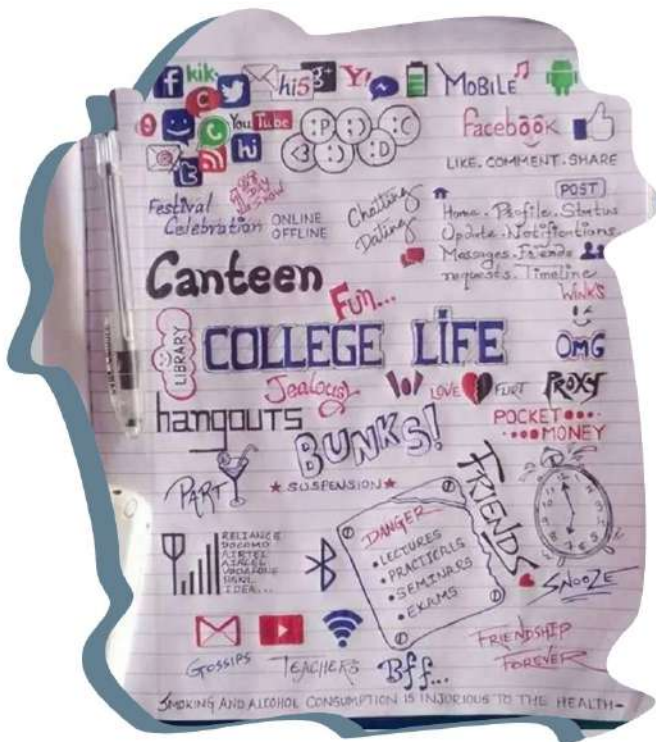 f kik hi5 g+ Y! MOBILE
You Tube :P :) :C
<3 :) :D
hi
t
facebook
LIKE. COMMENT. SHARE
POST
Festival
Celebration
ONLINE
OFFLINE
Chatting
Dating
Home. Profile. Status
Update. Notifications.
Messages. Friends
requests. Timeline
Canteen
Fun...
WINKS
LIBRARY
COLLEGE LIFE
OMG
Jealousy
LOVE FLIRT
PROXY
hangouts
BUNKS!
POCKET
MONEY
PARTY
SUSPENSION
FRIENDS
DANGER
• LECTURES
• PRACTICALS
• SEMINARS
• EXAMS
RELIANCE
DOCOMO
AIRTEL
AIRCEL
VODAFONE
BSNL
IDEA...
SNOOZE
GOSSIPS
TEACHERS
Bff...
FRIENDSHIP
FOREVER
SMOKING AND ALCOHOL CONSUMPTION IS INJURIOUS TO THE HEALTH-